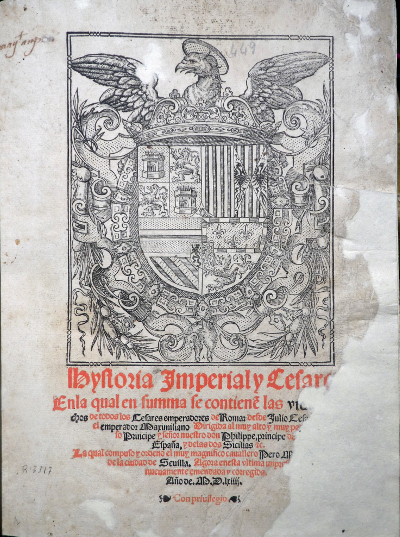 649
Hystoria Imperial y Cesar
Enla qual en summa se contienẽ las vi
chos de todos los Cesares emperadores de Roma: desde Julio Ces
el emperador Maximiliano Dirigida al muy alto y muy po
so Principe y señor nuestro don Philippe, principe de
España, y delas dos Sicilias &c.
La qual compuso y ordenó el muy magnifico cavallero Pero M
de la ciudad de Sevilla. Agora enesta ultima impre
nuevamente emendada y corregida.
Año de. M.D.lxiiij.
Con privilegio